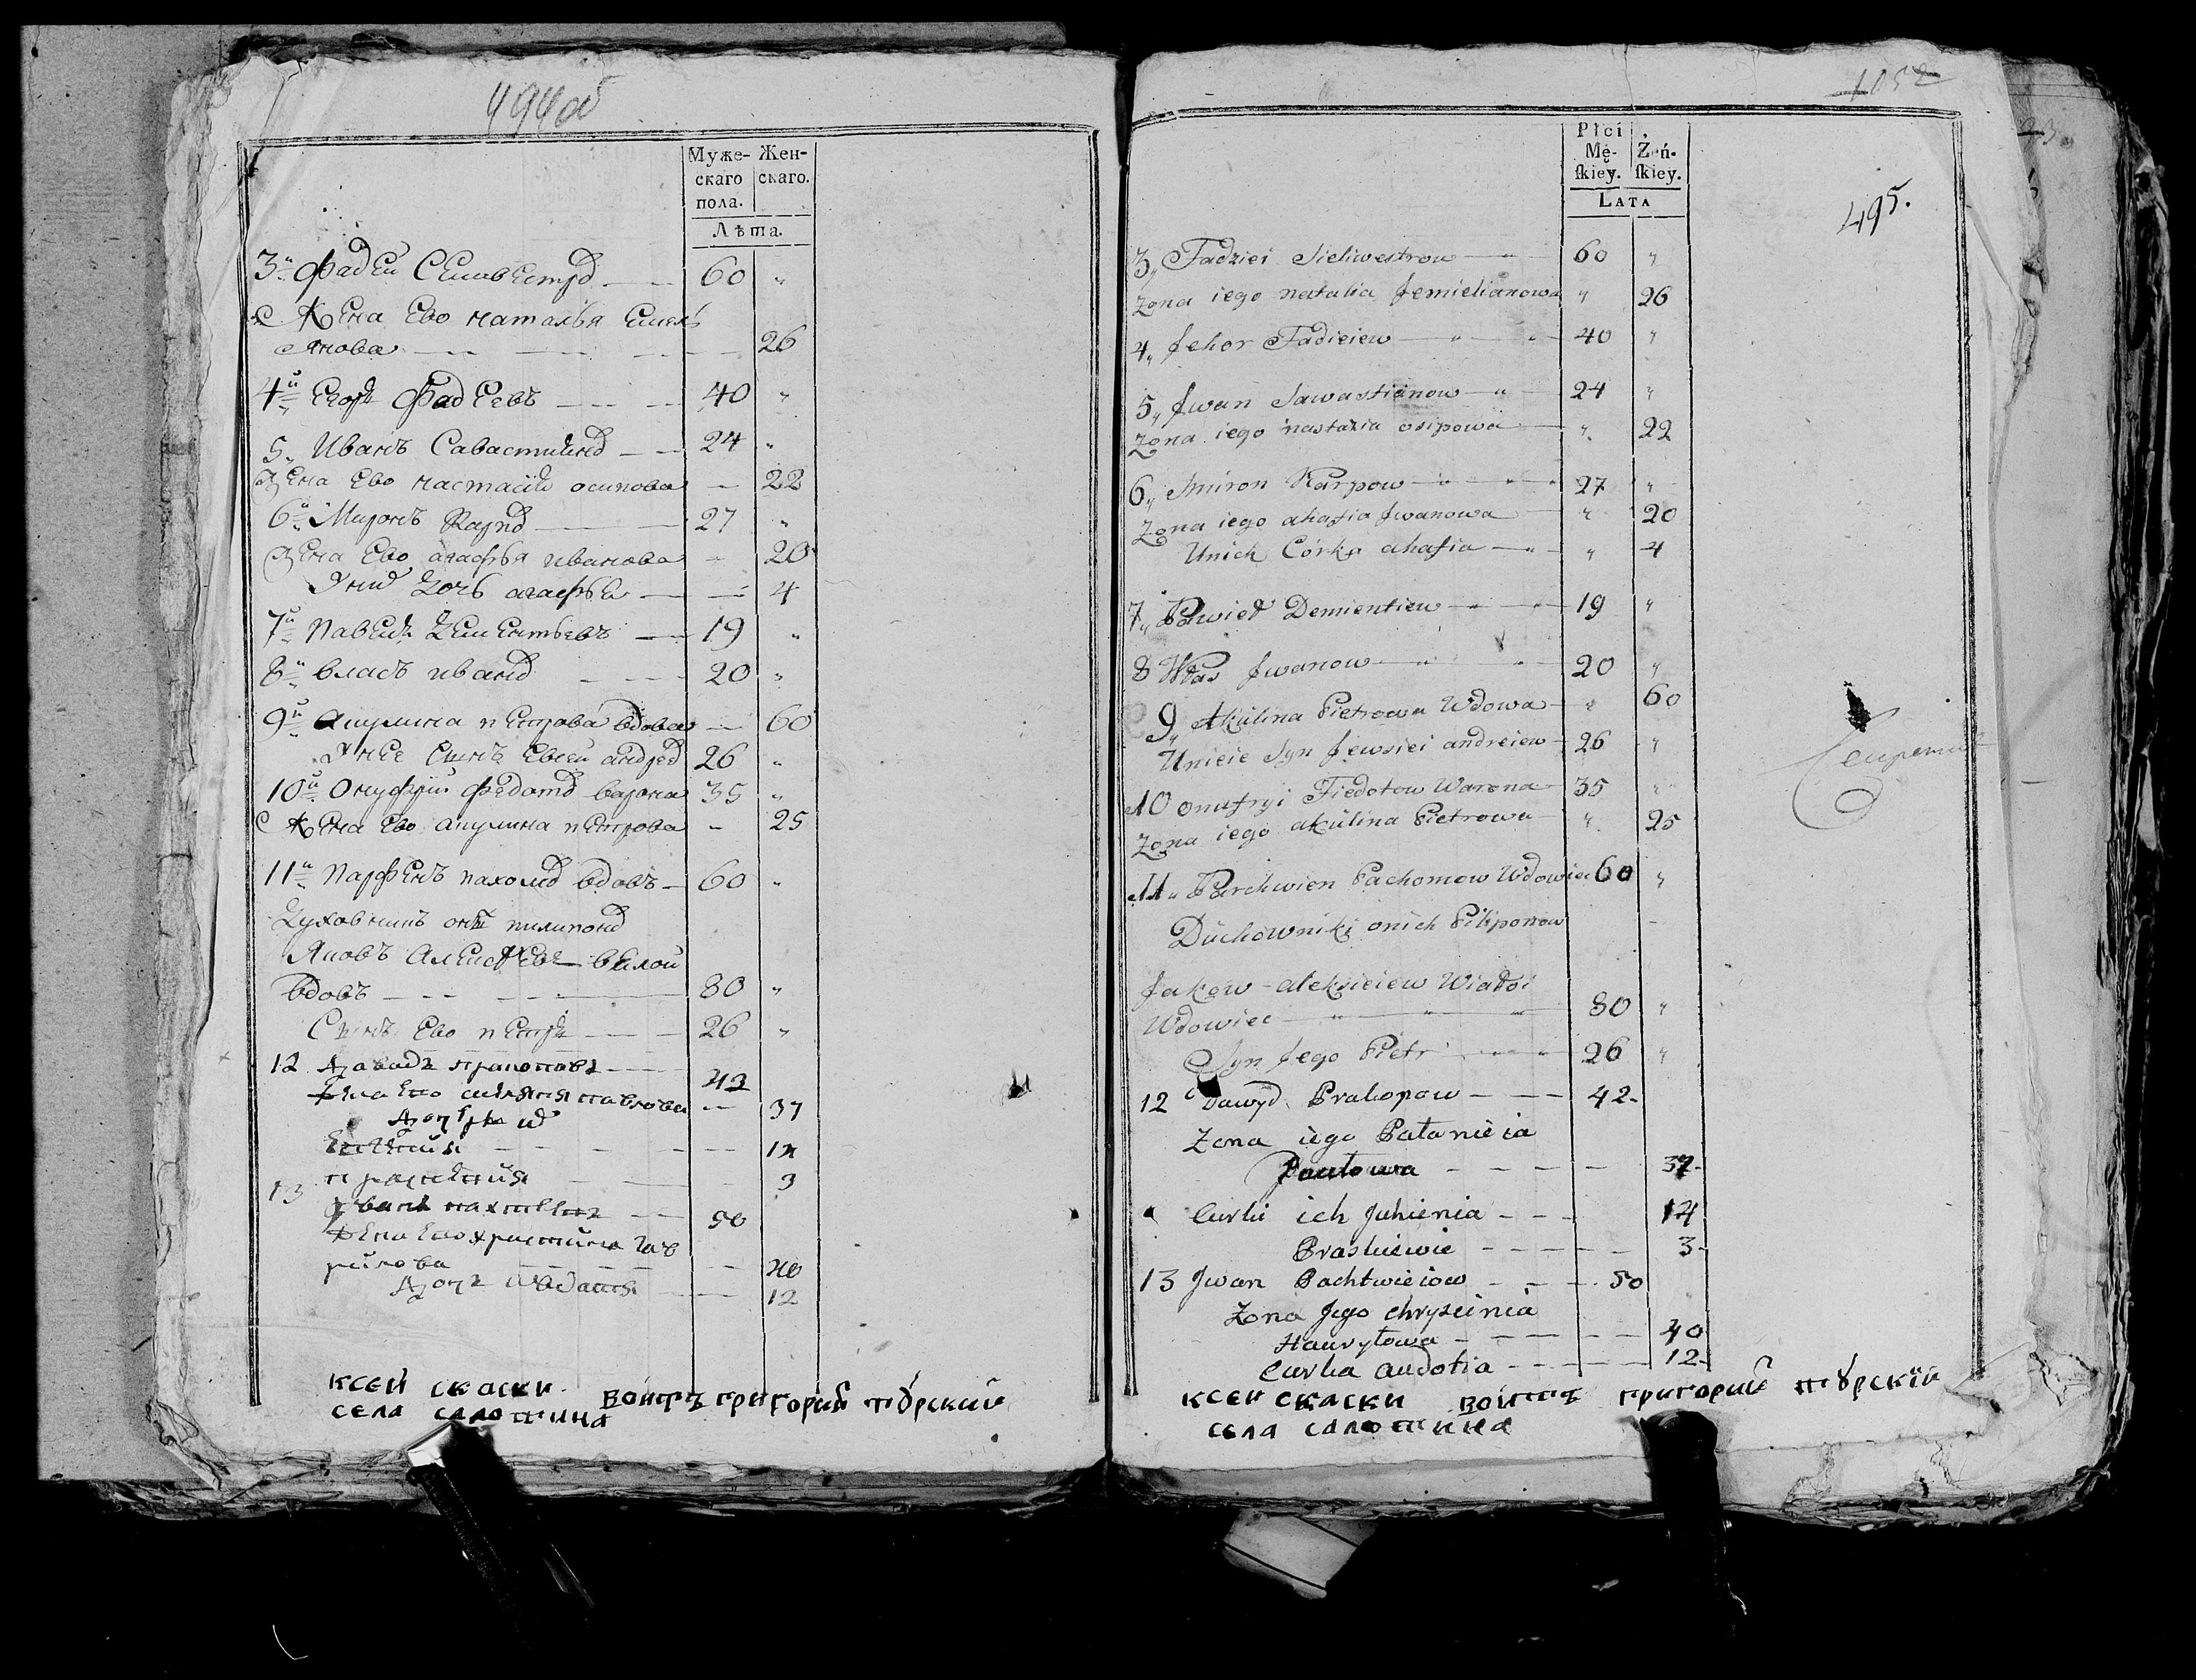 494об
Муже- Жен-
скаго скаго.
пола.
Лѣта.
3й Фадей Селивестро — 60 "
Жена Ево наталья Емель
янова — 26
4й Егоръ Фадеевъ — 40 "
5 Иванъ Савастияно — 24 "
Жена Ево настасія осипова — 22
6й Миронъ Карпо — 27 "
Жена Ево агафья иванова — 20
У них дочь агафья — 4
7й Павелъ Дементьевъ — 19 "
8й власъ ивано — 20 "
9й Акулина петрова вдова — 60
У нее Сынъ Евсей андрее 26 "
10й Онуфрий Федото варона 35 "
Жена Ево акулина петрова - 25
11й Парфенъ пахомо вдовъ — 60 "
Духовникъ они пилипоно
Яковъ Алексѣевъ белой
вдовъ — 80 "
Сынъ Ево петръ — 26 "
12 Давидъ прокоповъ — 42
жена его павлова — 37
Дочери их
— 14
— 3
13 Иванъ — 50
жена его христина гав
рилова — 40
Дочь — 12
ксей скаски войтъ григорий турский
села салотина
1052
495.
Płci
Mę- Żeń-
ſkiey. ſkiey.
LATA
3 Fadziei Sieliwestrow — 60 "
Zona iego natalia Jemielianowa " 26
4 Jehor Fadieiew — 40 "
5 Jwan Sawastianow — 24 "
Zona iego nastazia osipowa " 22
6 Miron Karpow — 27 "
Zona iego ahafia Jwanowa " 20
Unich Córka ahafia — " 4
7 Pawieł Demientiew — 19 "
8 Włas Jwanow — 20 "
9 Akulina Pietrowa Wdowa — " 60
Unieie Syn Jewsiei andreiew — 26 "
10 onufryi Fiedotow Warona — 35 "
Zona iego akulina Pietrowa — " 25
11 Parchwien Pachomow Wdowiec 60 "
Duchowniki onich Piliponow
Jakow aleksieiew Wiałoi
Wdowiec — 80 "
Syn Jego Pietr — 26 "
12 Dawyd Prakopow — 42
Zona iego Pałanieia
Pawłowa — 37
Curki ich Juhienia — 14
Praskiewie — 3
13 Jwan Pachtwieiow — 50
Zona Jego chryscinia
Hawryłowa — 40
Curka audotia — 12
ксей скаски войтъ григорий турский
села салотина